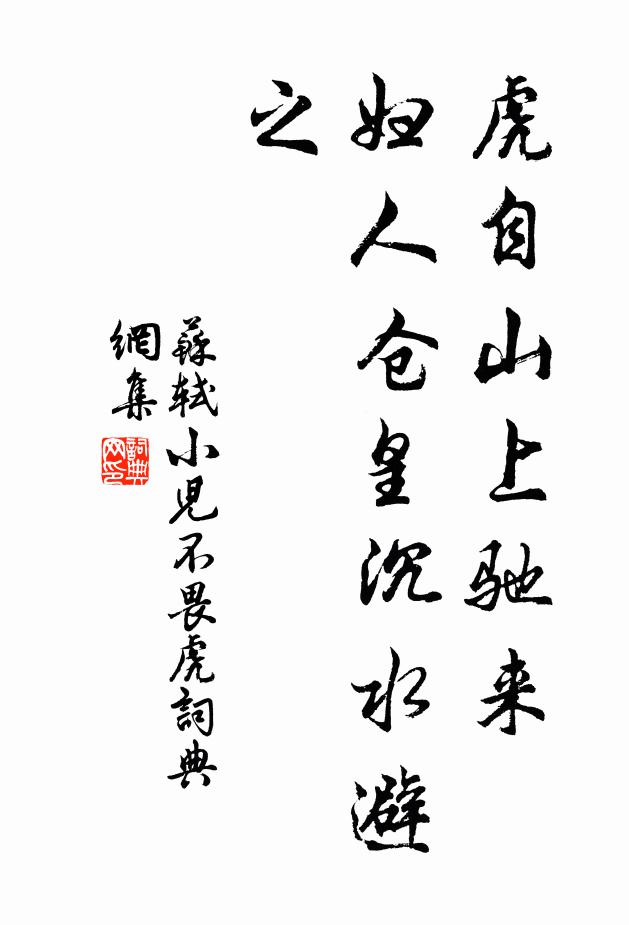 虎自山上驰来
妇人仓皇沉水避
之
蘇軾小児不畏虎詞典
網集
詞典
网印